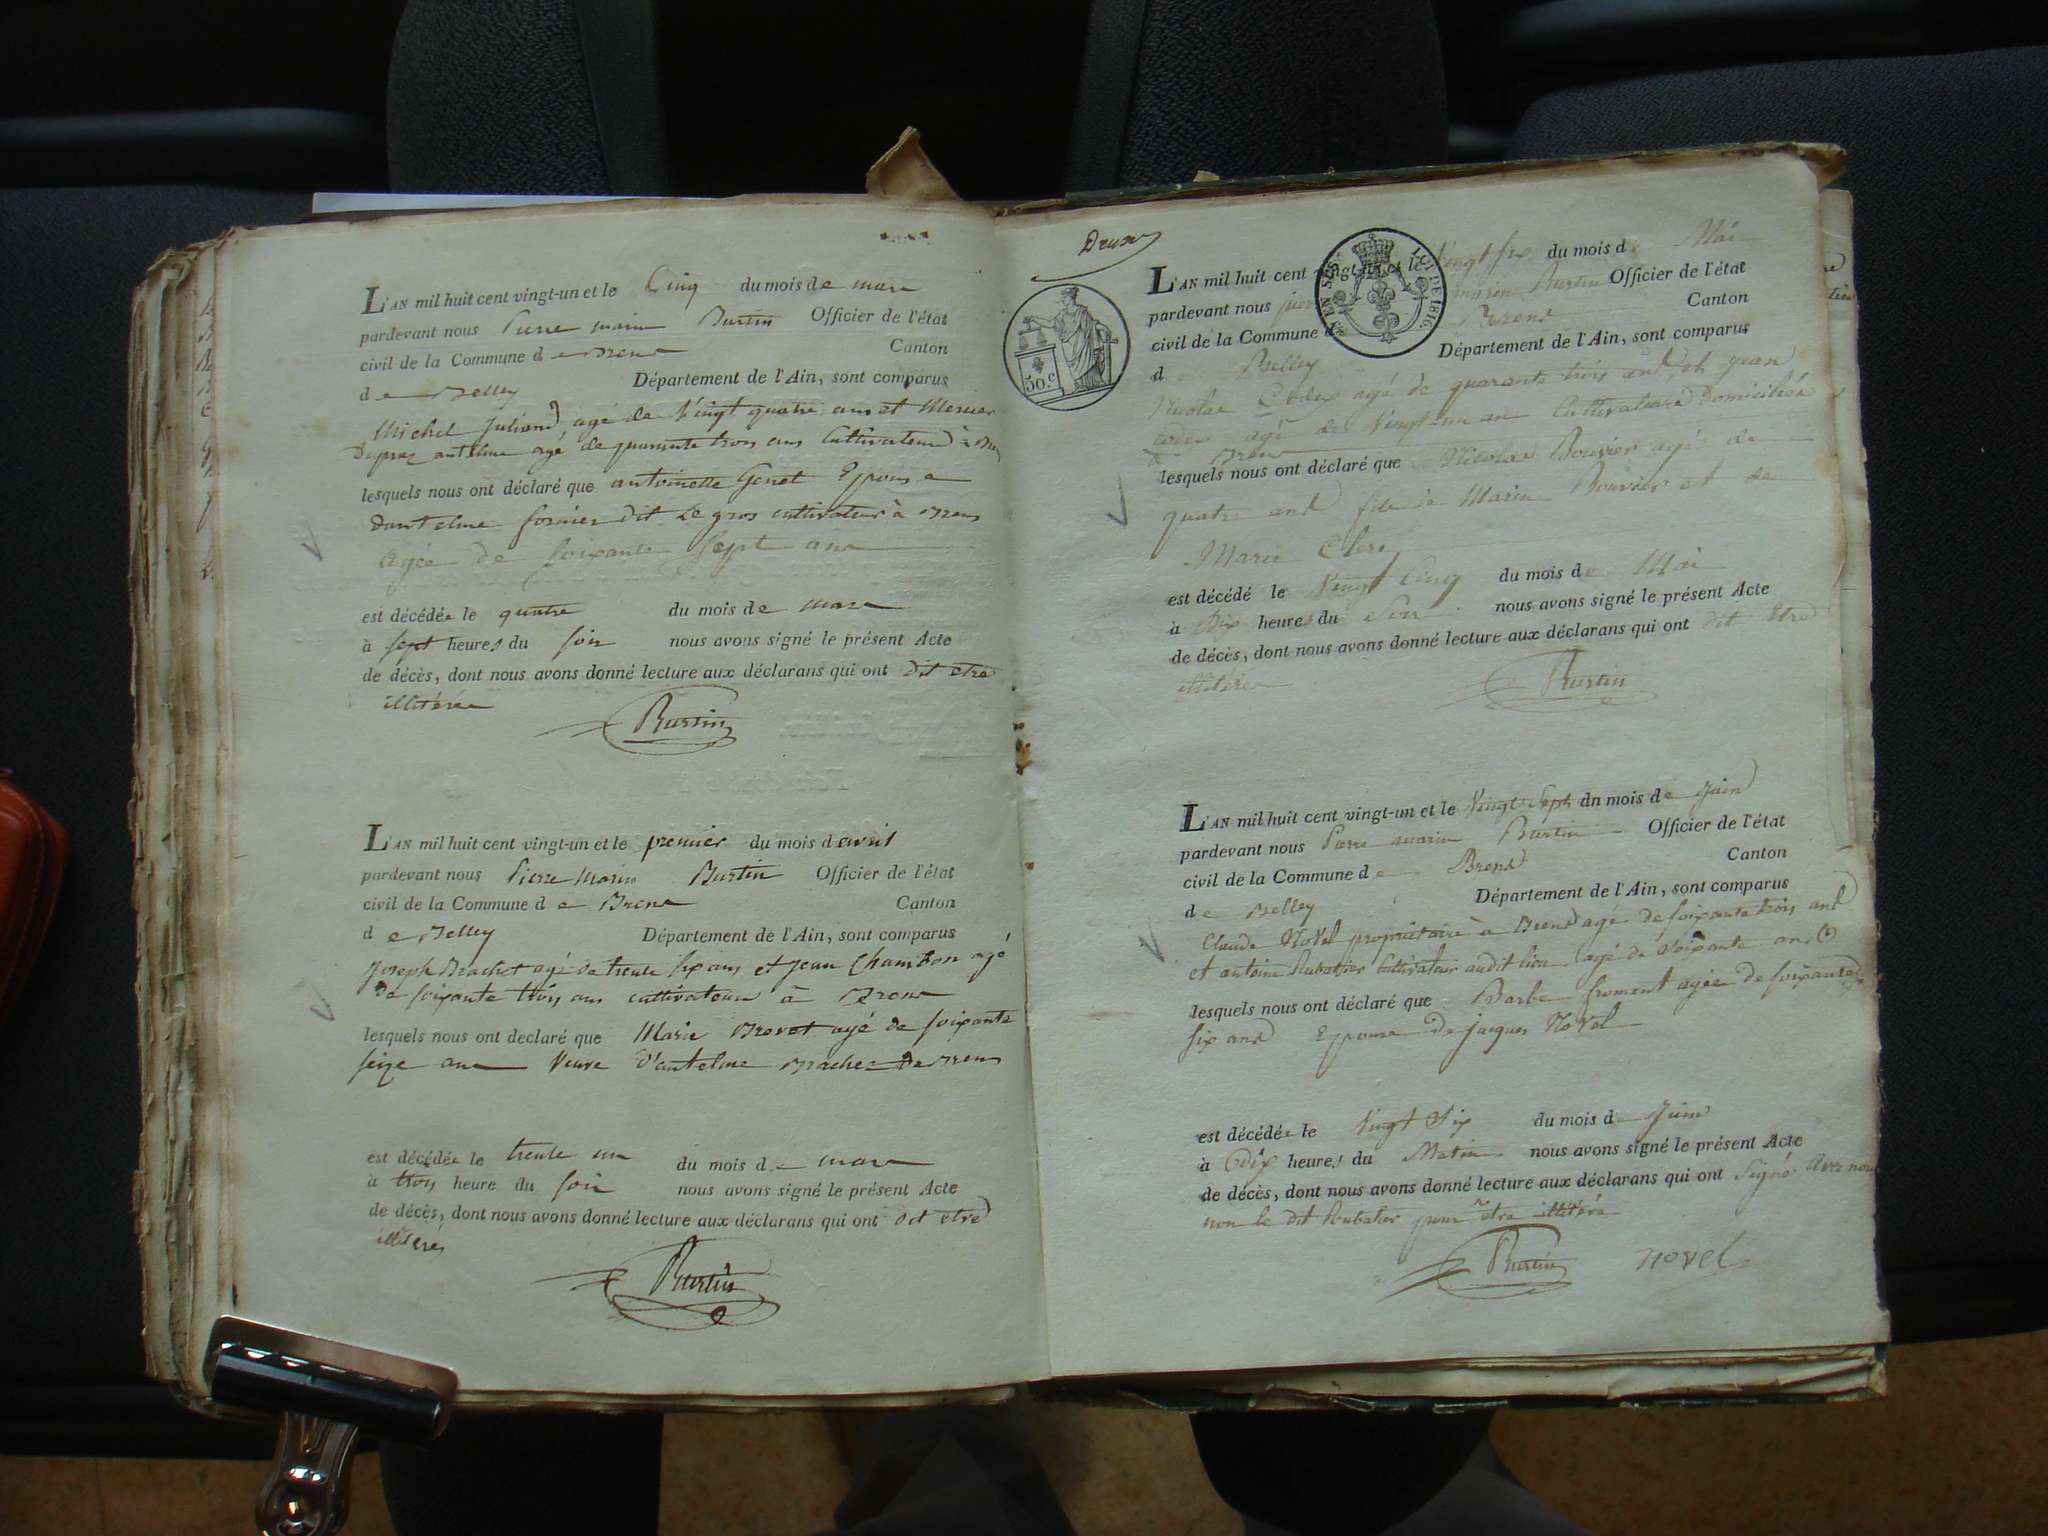 L'AN mil huit cent vingt-un et le Cinq du mois de mars
pardevant nous Pierre marin Burtin Officier de l'état
civil de la Commune de Brens Canton
de Belley Département de l'Ain, sont comparus
Michel Juliand, agé de Vingt quatre ans et Mercier
anthelme agé de quarante trois ans Cultivateurs à
lesquels nous ont déclaré que antoinette Genet Epouse
Dantelme fornier dit Le gros cultivateur à Brens
Agée de soixante Sept ans
est décédée le quatre du mois de mars
à sept heures du soir nous avons signé le présent Acte
de décès, dont nous avons donné lecture aux déclarans qui ont dit etre
illitérés
Burtin
L'AN mil huit cent vingt-un et le premier du mois d'avril
pardevant nous Pierre Marin Burtin Officier de l'état
civil de la Commune de Brens Canton
de Belley Département de l'Ain, sont comparus
Joseph Brachet agé de trente six ans et Jean Chambon agé
de soixante trois ans cultivateurs à Brens
lesquels nous ont déclaré que Marie Brevet agé de soixante
seize ans Veuve d'antelme Brachet de Brens
est décédée le trente un du mois de mars
à trois heure du soir nous avons signé le présent Acte
de décès, dont nous avons donné lecture aux déclarans qui ont dit etre
illitérés
Burtin
50.c
LOI DE 1816
L'AN mil huit cent vingt-un et le Vingt six du mois de Mai
pardevant nous pierre marin Burtin Officier de l'état
civil de la Commune d Brens Canton
d Belley Département de l'Ain, sont comparus
Nicolas Codex agé de quarante trois ans, et jean
codex agé de Vingt-un an Cultivateurs Domiciliés
à Brens
lesquels nous ont déclaré que Nicolas Bouvier agé de
quatre ans fils de Marin Bouvier et de
Marie Clerc
est décédé le Vingt Cinq du mois de Mai
à Dix heures du Soir nous avons signé le présent Acte
de décès, dont nous avons donné lecture aux déclarans qui ont dit Etre
illitérés
Burtin
L'AN mil huit cent vingt-un et le Vingt Sept dn mois de Juin
pardevant nous Pierre marin Burtin Officier de l'état
civil de la Commune de Brens Canton
de Belley Département de l'Ain, sont comparus
Claude Novel propriétaire à Brens agé de soixante trois ans
et antoine Rubatier Cultivateur audit lieu agé de Soixante ans
lesquels nous ont déclaré que Barbe froment agée de soixante
six ans Epouse de jacques Novel
est décédée le Vingt Six du mois de Juin
à Dix heures du Matin nous avons signé le présent Acte
de décès, dont nous avons donné lecture aux déclarans qui ont Signé Avec nous
non le dit Roubatier pour etre illitéré
Burtin novel